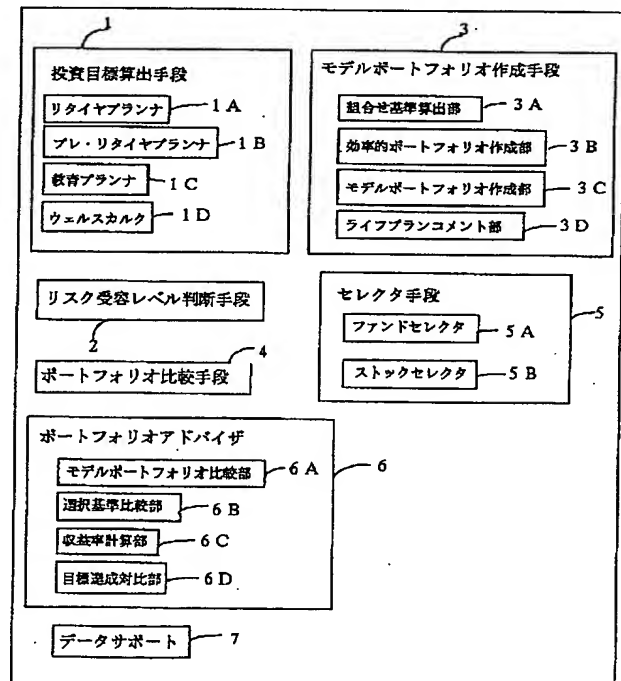 1
投資目標算出手段
リタイヤプランナ 1A
プレ・リタイヤプランナ 1B
教育プランナ 1C
ウェルスカルク 1D
3
モデルポートフォリオ作成手段
組合せ基準算出部 3A
効率的ポートフォリオ作成部 3B
モデルポートフォリオ作成部 3C
ライフプランコメント部 3D
リスク受容レベル判断手段
2
ポートフォリオ比較手段 4
セレクタ手段
ファンドセレクタ 5A
ストックセレクタ 5B
5
ポートフォリオアドバイザ
モデルポートフォリオ比較部 6A
選択基準比較部 6B
収益率計算部 6C
目標達成対比部 6D
6
データサポート 7